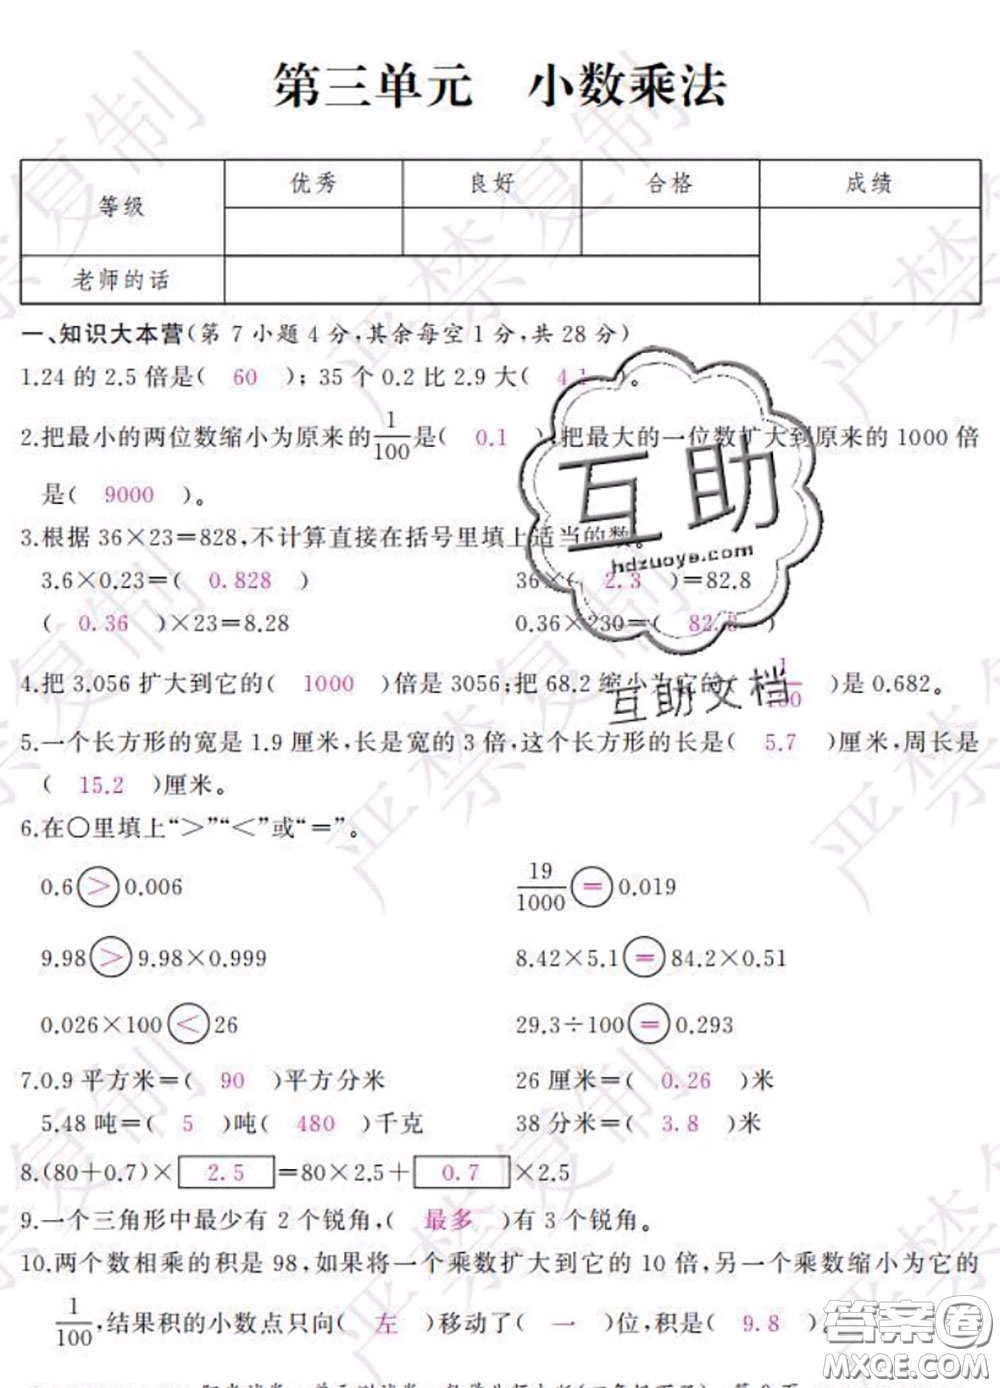 第三单元 小数乘法
等级 优秀 良好 合格 成绩
老师的话
一、知识大本营(第 7 小题 4 分,其余每空 1 分,共 28 分)
1.24 的 2.5 倍是( 60 ); 35 个 0.2 比 2.9 大( 4.1 )。
2.把最小的两位数缩小为原来的1/100是( 0.1 ),把最大的一位数扩大到原来的 1000 倍
是( 9000 )。
3.根据 36×23=828,不计算直接在括号里填上适当的数。
3.6×0.23=( 0.828 ) 36×( 2.3 )=82.8
( 0.36 )×23=8.28 0.36×230=( 82.8 )
4.把 3.056 扩大到它的( 1000 )倍是 3056;把 68.2 缩小为它的( 1/100 )是 0.682。
5.一个长方形的宽是 1.9 厘米,长是宽的 3 倍,这个长方形的长是( 5.7 )厘米,周长是
( 15.2 )厘米。
6.在○里填上“>”“<”或“=”。
0.6 > 0.006 19/1000 = 0.019
9.98 > 9.98×0.999 8.42×5.1 = 84.2×0.51
0.026×100 < 26 29.3÷100 = 0.293
7.0.9 平方米=( 90 )平方分米 26 厘米=( 0.26 )米
5.48 吨=( 5 )吨( 480 )千克 38 分米=( 3.8 )米
8.(80+0.7)× 2.5 =80×2.5+ 0.7 ×2.5
9.一个三角形中最少有 2 个锐角,( 最多 )有 3 个锐角。
10.两个数相乘的积是 98,如果将一个乘数扩大到它的 10 倍,另一个乘数缩小为它的
1/100,结果积的小数点只向( 左 )移动了( 一 )位,积是( 9.8 )。
互助
hdzuoye.com
互助文档
严禁复制
答案圈
MXQE.COM